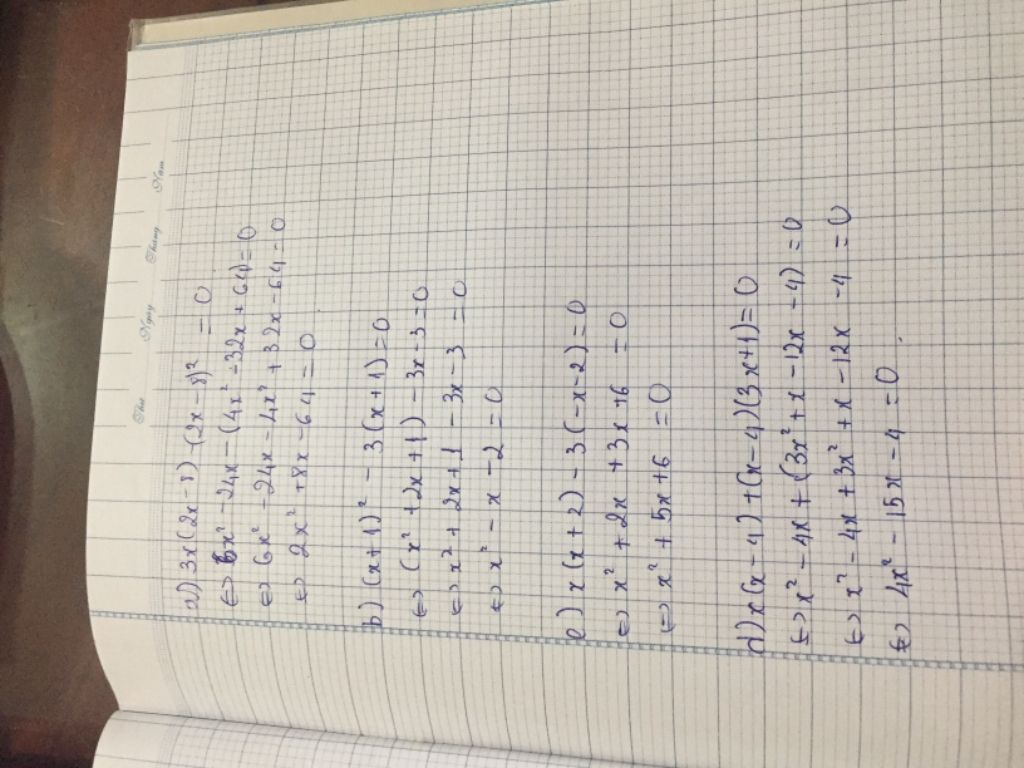 Thứ Ngày Tháng Năm
a) 3x(2x-8) - (2x-8)² = 0
⇔ 6x² - 24x - (4x² - 32x + 64) = 0
⇔ 6x² - 24x - 4x² + 32x - 64 = 0
⇔ 2x² + 8x - 64 = 0
b) (x+1)² - 3(x+1) = 0
⇔ (x² + 2x + 1) - 3x - 3 = 0
⇔ x² + 2x + 1 - 3x - 3 = 0
⇔ x² - x - 2 = 0
c) x(x+2) - 3(-x-2) = 0
⇔ x² + 2x + 3x + 6 = 0
⇔ x² + 5x + 6 = 0
d) x(x-4) + (x-4)(3x+1) = 0
⇔ x² - 4x + (3x² + x - 12x - 4) = 0
⇔ x² - 4x + 3x² + x - 12x - 4 = 0
⇔ 4x² - 15x - 4 = 0